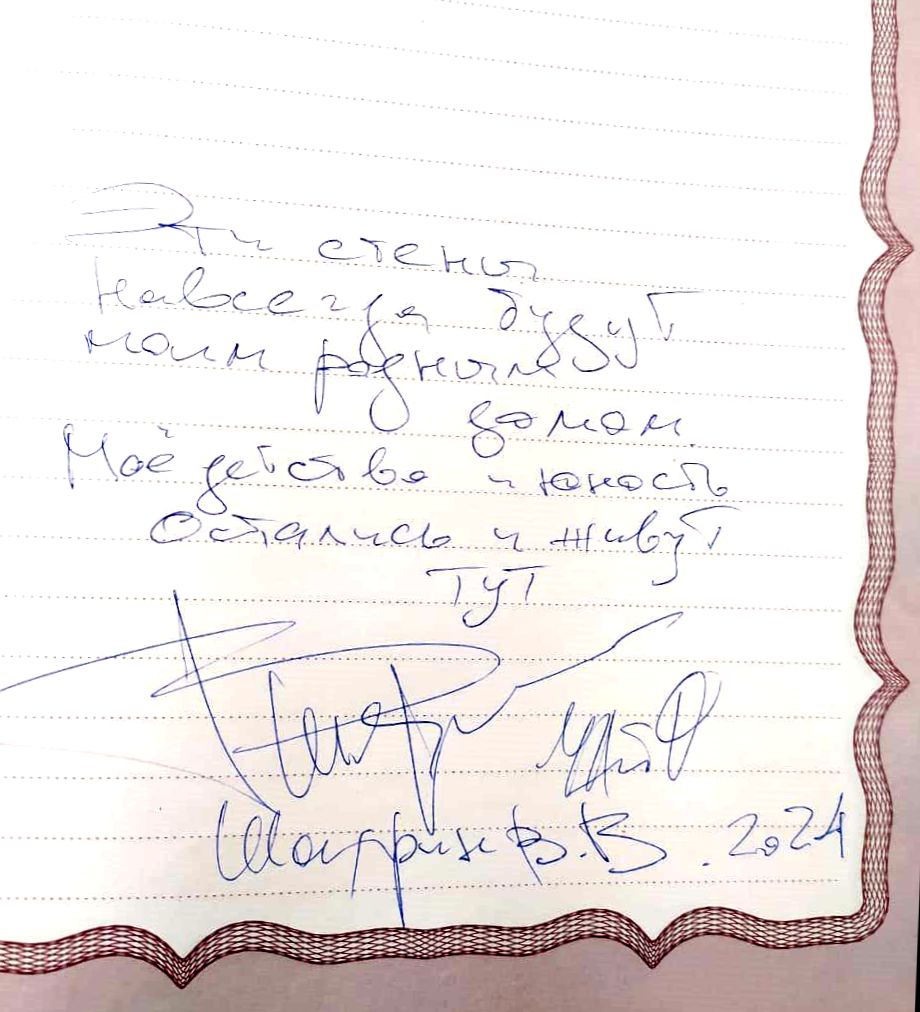 Эти стены
навсегда будут
моим родным
домом.
Моё детство и юность
остались и живут
тут
Шандрин В.В. 2024